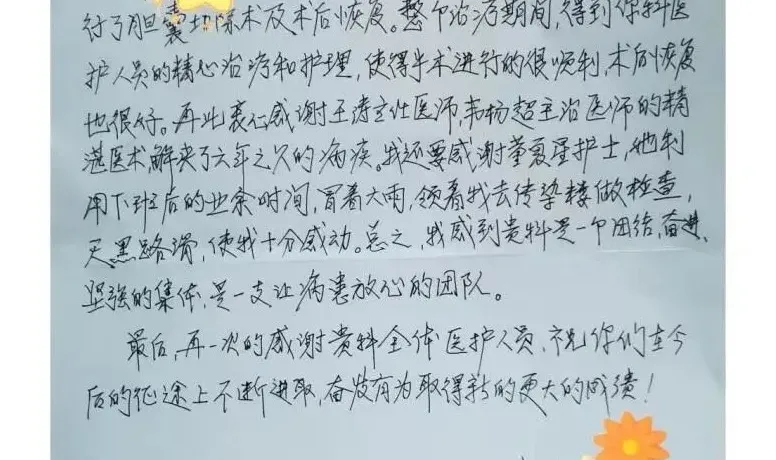 行了胆囊切除术及术后恢复。整个治疗期间,得到你科医
护人员的精心治疗和护理,使得手术进行的很顺利,术后恢复
也很好。再此衷心感谢王涛主任医师,韦杨超主治医师的精
湛医术解决了六年之久的病疾。我还要感谢董夏星护士,她利
用下班后的业余时间,冒着大雨,领着我去传染楼做检查,
天黑路滑,使我十分感动。总之,我感到贵科是一个团结,奋进、
坚强的集体,是一支让病患放心的团队。
最后,再一次的感谢贵科全体医护人员、祝你们在今
后的征途上不断进取,奋发有为取得新的更大的成绩!